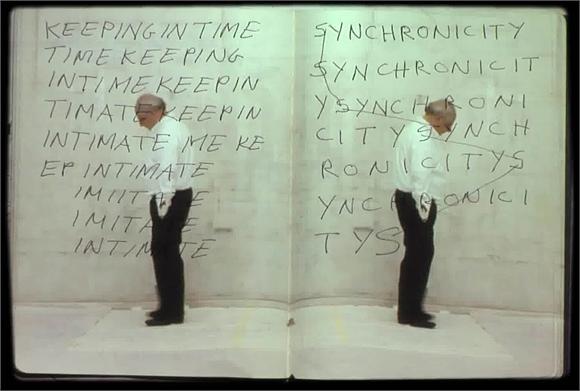 KEEPING IN TIME
TIME KEEPING
INTIME KEEPIN
TIMATE KEEPIN
INTIMATE ME KE
EP INTIMATE
IMIITATE
IMITATE
INTIMATE
SYNCHRONICITY
SYNCHRONICIT
YSYNCHRONI
CITYSYNCH
RONICITYS
YNCHRONICI
TYS